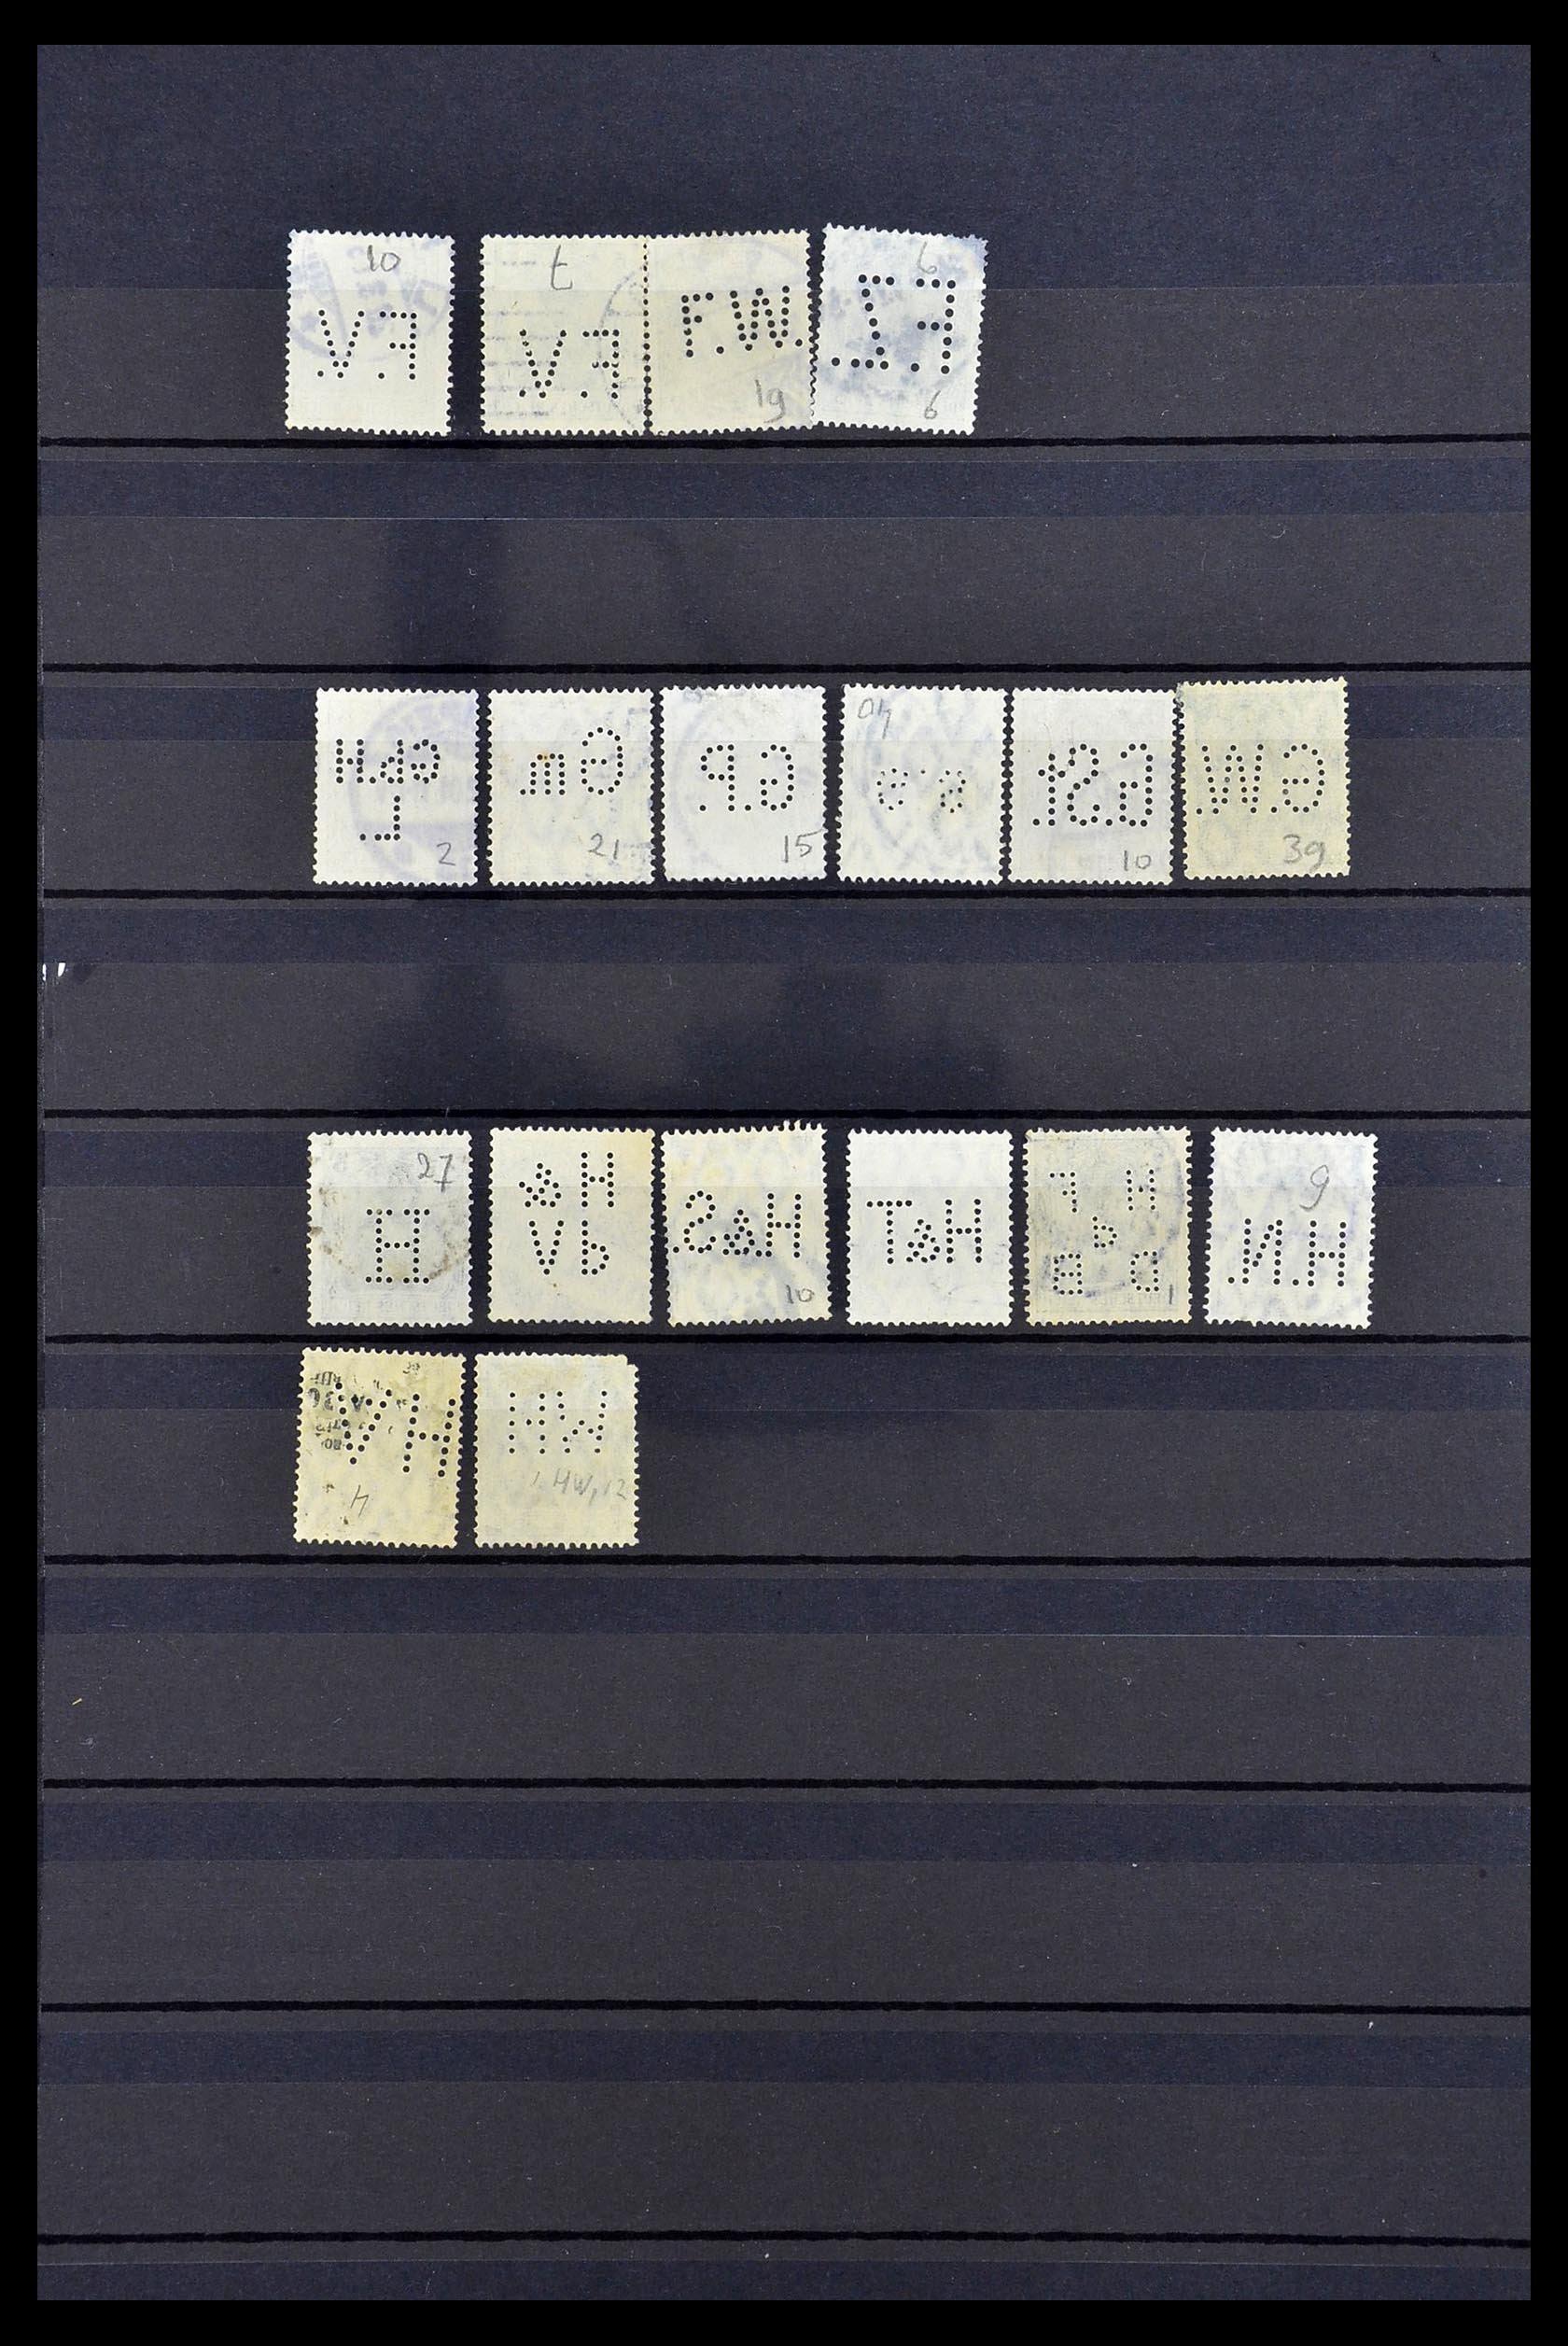 10
F.V.
7
F.V.
F.W.
19
6
F.Z.
6
GbH
L
2
Gm.
21
G.P.
15
40
10
G.St.
G.W.
39
27
H
H &
d V
H&S.
10
H&T
H F
d
D B
1
9
H.N.
HV
4
HW
HW, 12